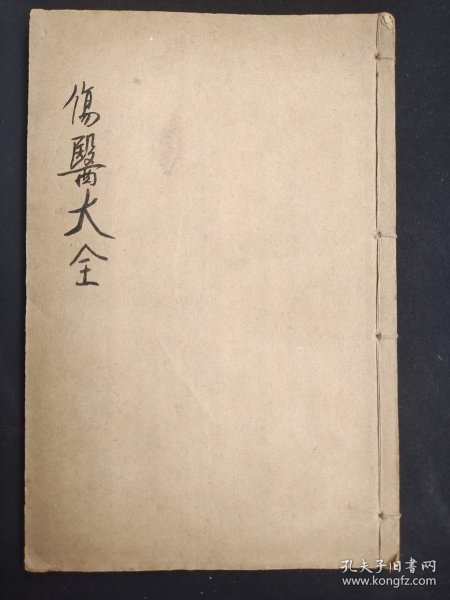 傷醫大全
孔夫子旧书网
www.kongfz.com